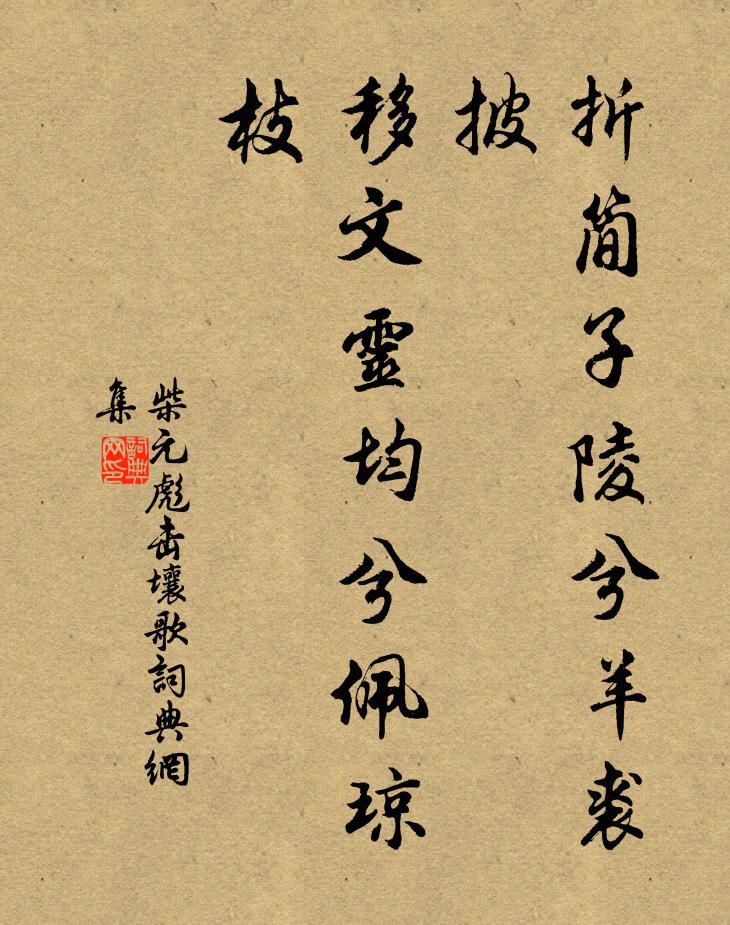 折简子陵兮羊裘
披
移文靈均兮佩瓊
枝
柴元彪击壤歌詞典網
集
詞典
网印